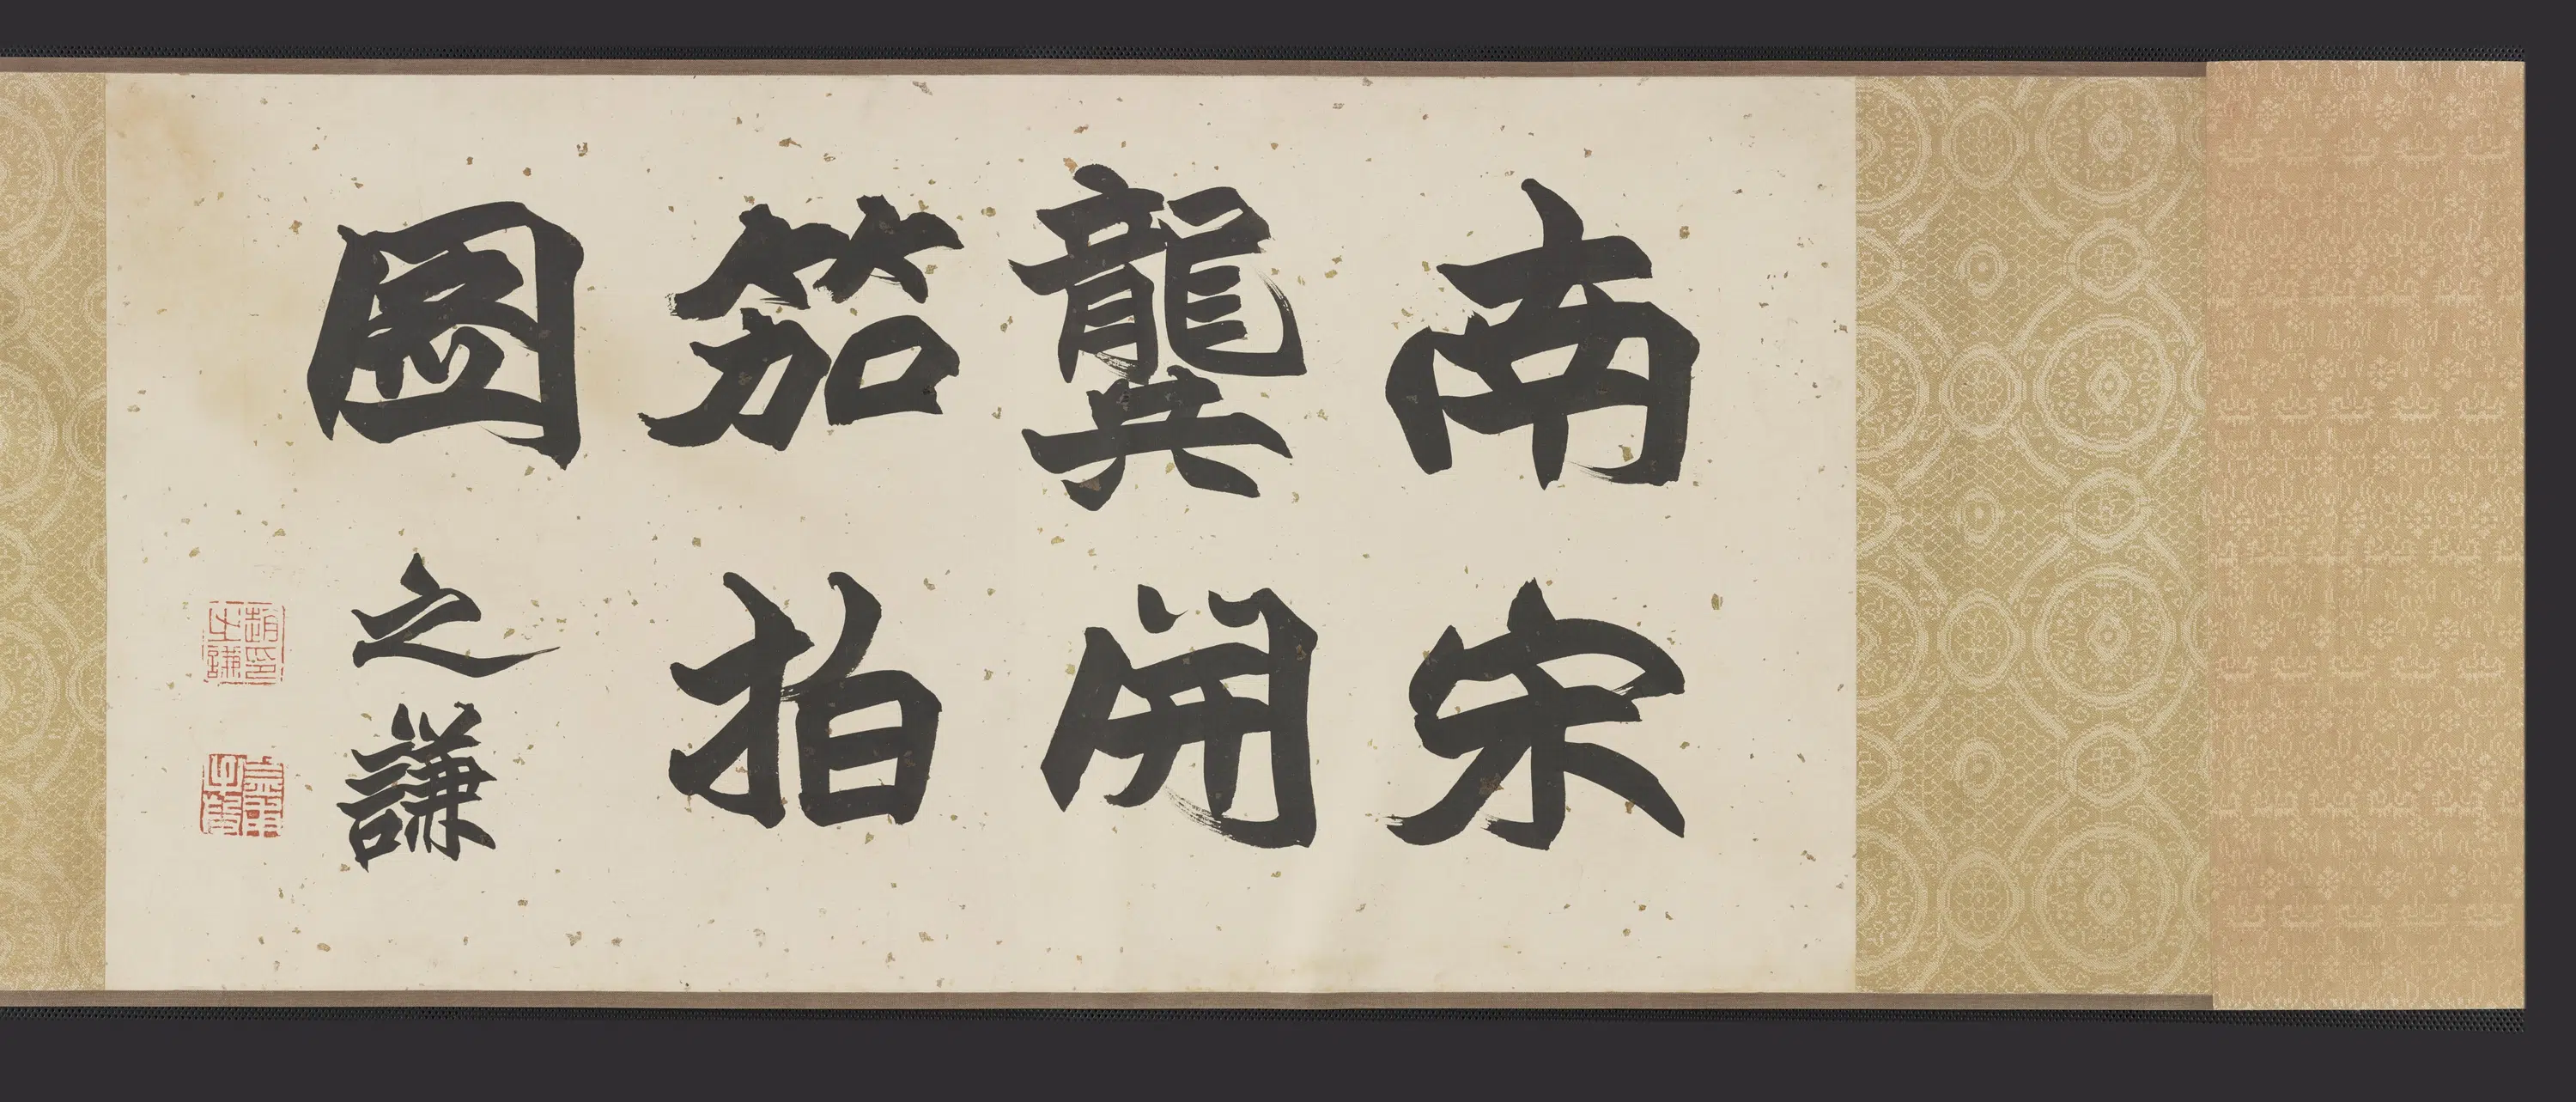 南宋
龔開
笳拍
圖
之謙
趙之謙印